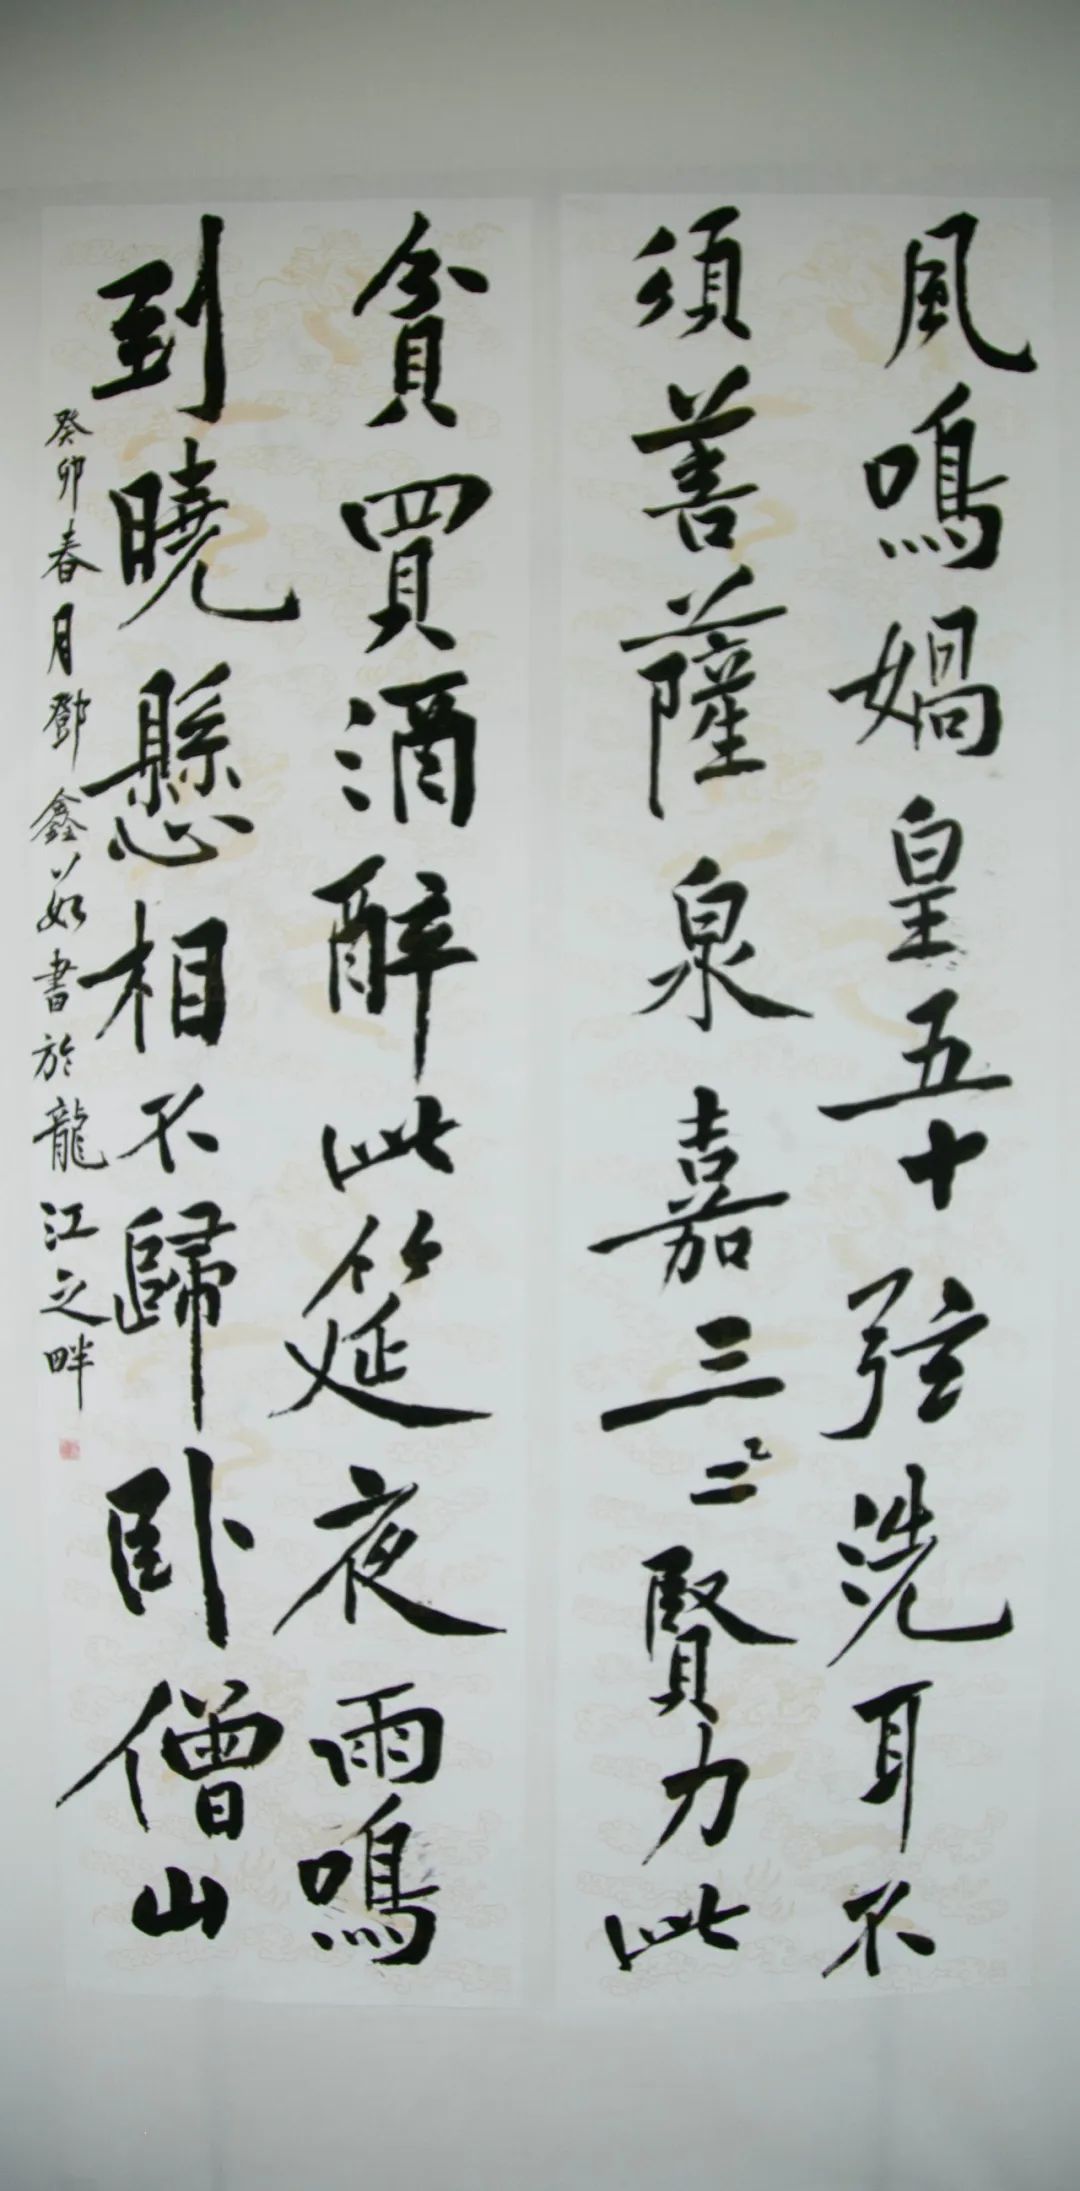 風鳴媧皇五十弦洗耳不
須菩薩泉嘉三二賢力此
貧買酒醉此筵夜雨鳴
到曉懸相不歸臥僧山
癸卯春月鄧鑫茹書於龍江之畔